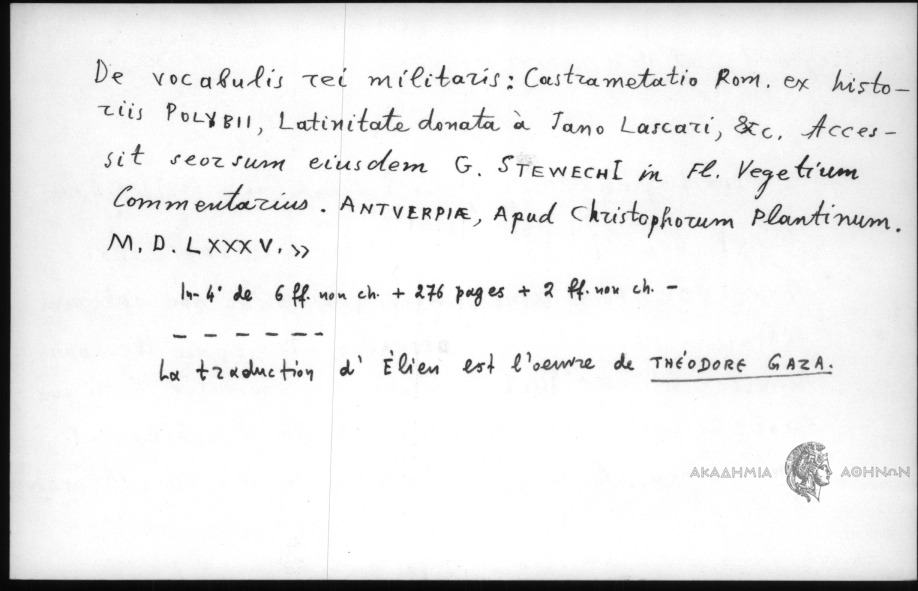 De vocabulis rei militaris: Castrametatio Rom. ex histo-
riis POLYBII, Latinitate donata à Jano Lascari, &c. Acces-
sit seorsum eiusdem G. STEWECHI in Fl. Vegetium
Commentarius. ANTVERPIÆ, Apud Christophorum Plantinum.
M. D. LXXXV. »
In-4° de 6 ff. non ch. + 276 pages + 2 ff. non ch. -
------
La traduction d'Élien est l'oeuvre de THÉODORE GAZA.
ΑΚΑΔΗΜΙΑ ΑΘΗΝΩΝ